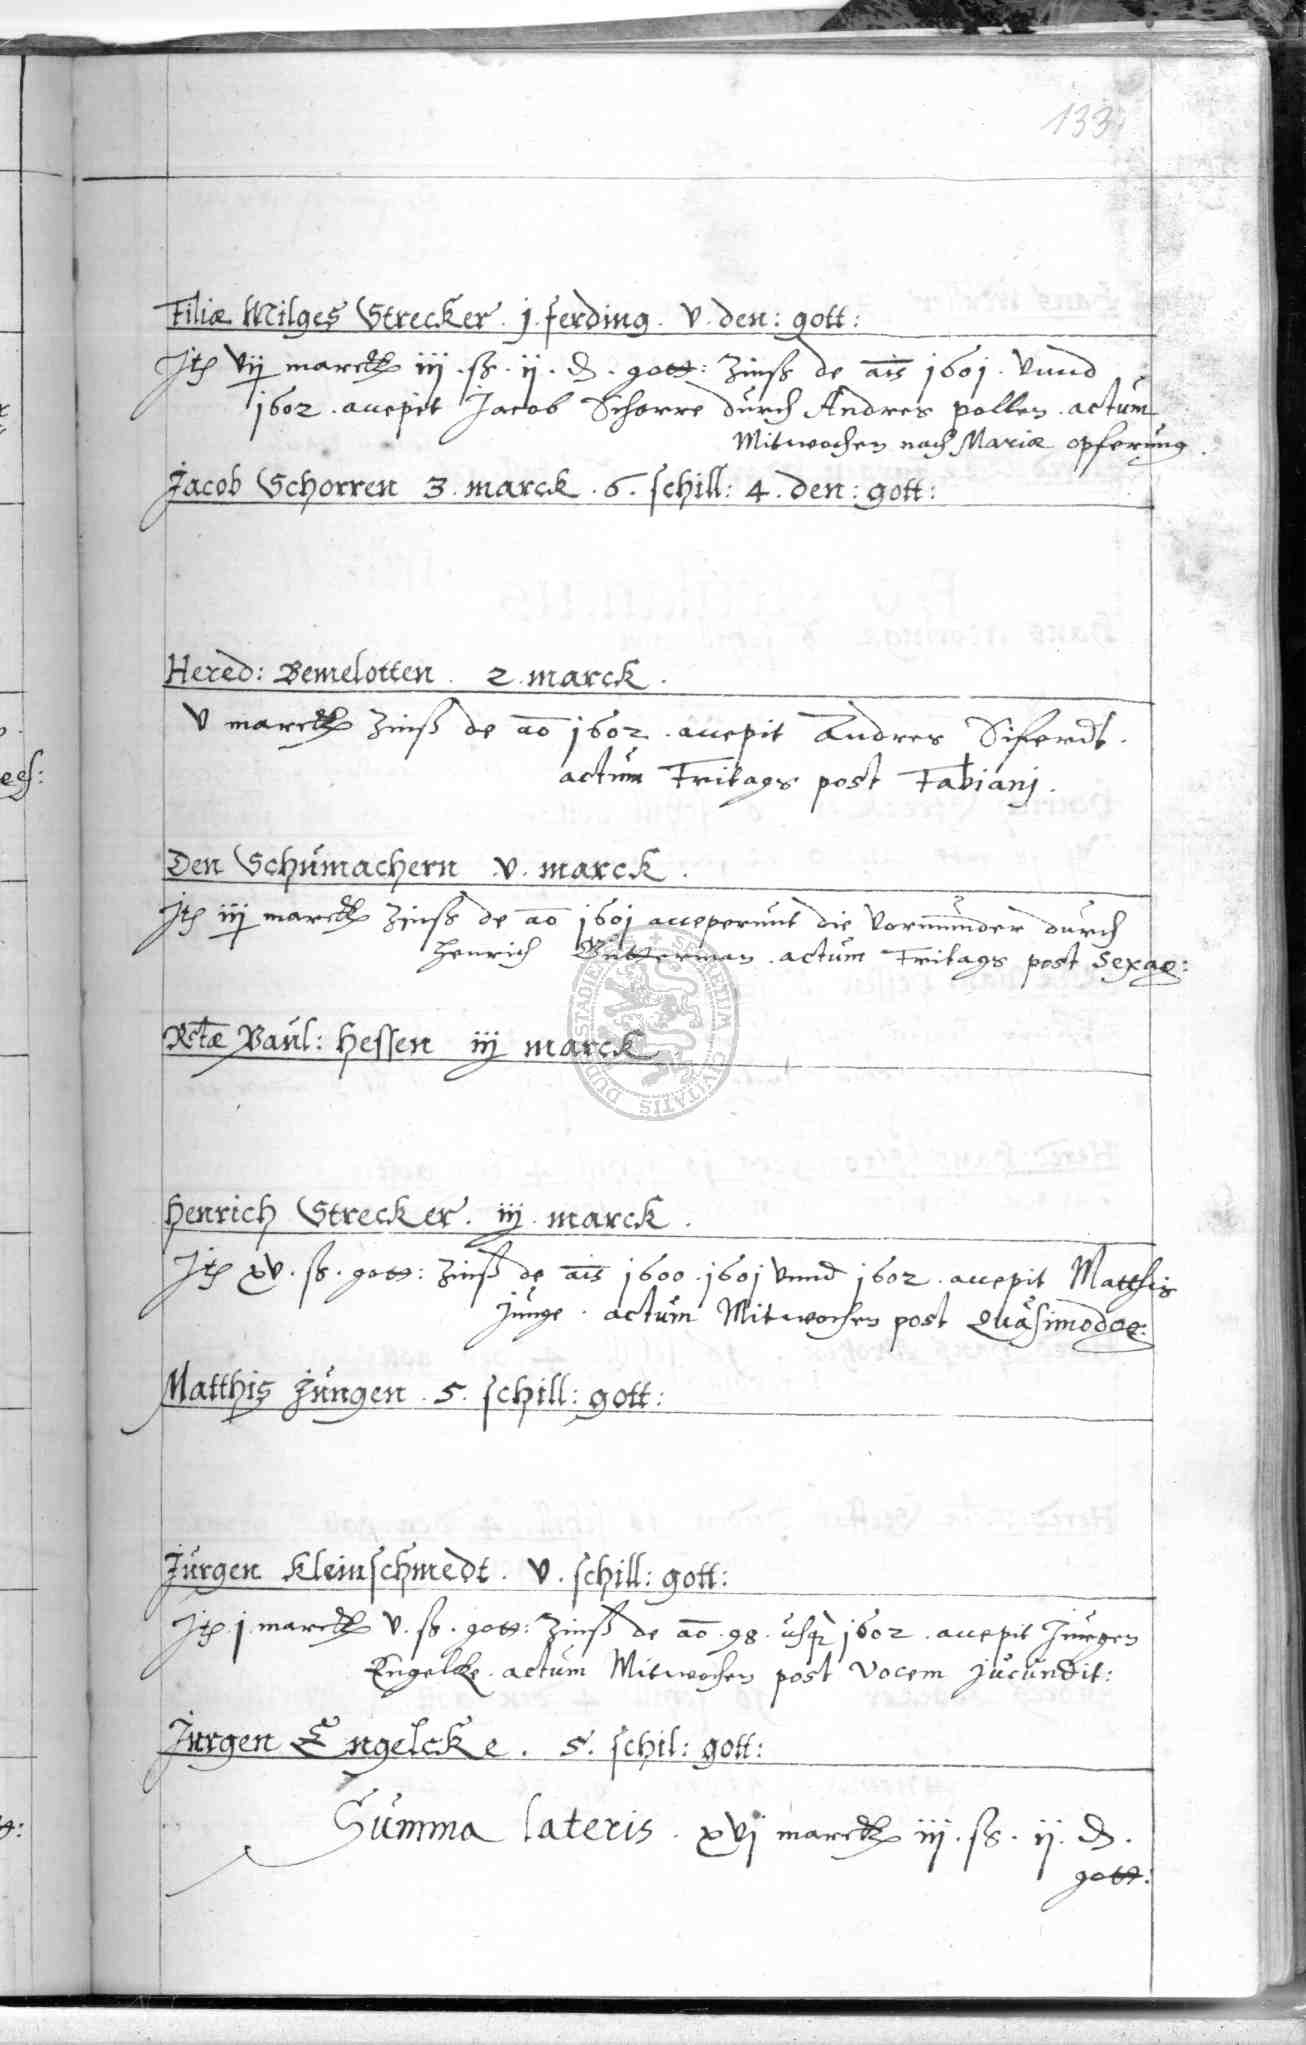 133
Filiæ Milges Strecker . j . ferding . v . den : gott :
Jtē vij marck iij . ß . ij . ₰ . gott : Zinß de aīs 1601 . vnnd
1602 . accepit Jacob Schorre durch Andres pollen . actum
Mitwochen nach Mariæ opferung .
Jacob Schorren 3 . marck . 6 . schill : 4 . den : gott :
Hered : Bemelotten . 2 . marck .
v marck Zinß de ao 1602 . accepit Andres Siferdt .
actum Fritags post Fabianj .
Den Schumachern . v . marck .
Jtē iij marck Zinß de ao 1601 acceperunt die Vormunder durch
Henrich Butterman . actum Fritags post Sexag :
Rctæ Paul : Hessen iij marck
SECRETUM CIVITATIS DUDERSTADIENSE
Henrich Strecker . iij . marck .
Jtē xv . ß . gott : Zinß de aīs 1600 . 1601 vnnd 1602 . accepit Matthis
Junge . actum Mitwochen post Quasimodog :
Matthis Jungen . 5 . schill : gott :
Jurgen Kleinschmedt . v . schill : gott :
Jtē j marck v . ß . gott : Zinß de ao . 98 . usq 1602 . accepit Jurgen
Engelcke . actum Mitwochen post Vocem Jucundit :
Jurgen Engelcke . 5 . schil : gott :
Summa lateris . xvj marck iij . ß . ij . ₰ .
gott :